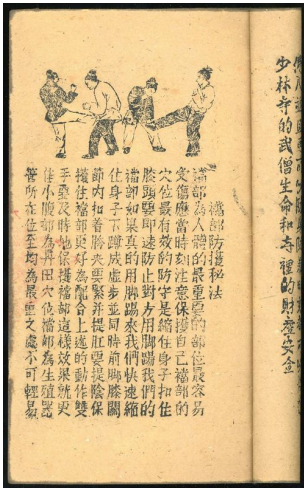 少林寺的武僧生命和寺裡的財產安全
襠部防護秘法
襠部為人體的最重要的部位最容易
受傷應當時刻注意保護自己襠部的
穴位最有效的防守是縮住身子扣住
膝頭要即速防止對方用脚踢我們的
襠部如果真的用脚踢來我們快速縮
住身子下蹲成虚步並同時前脚膝關
節内扣着膀夾要緊并提肛要提陰保
護住襠部更好為配合上述的動作雙
手要及時地保護襠部這樣效果就更
佳小腹部為丹田穴位襠部為生殖器
管所在位至均為最重之處不可輕易